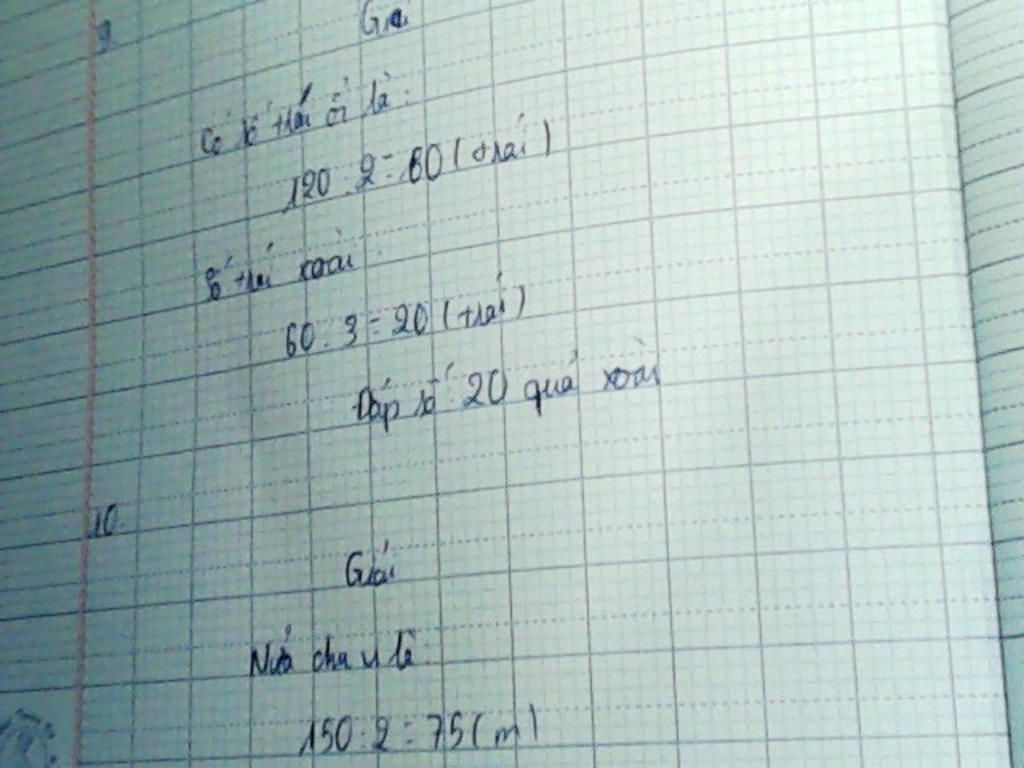 9.
Giả
Có số trái ổi là:
120 : 2 = 60 (trái)
Số trái xoài:
60 : 3 = 20 (trái)
Đáp số 20 quả xoài
10.
Giải
Nửa chu vi là:
150 : 2 = 75 (m)